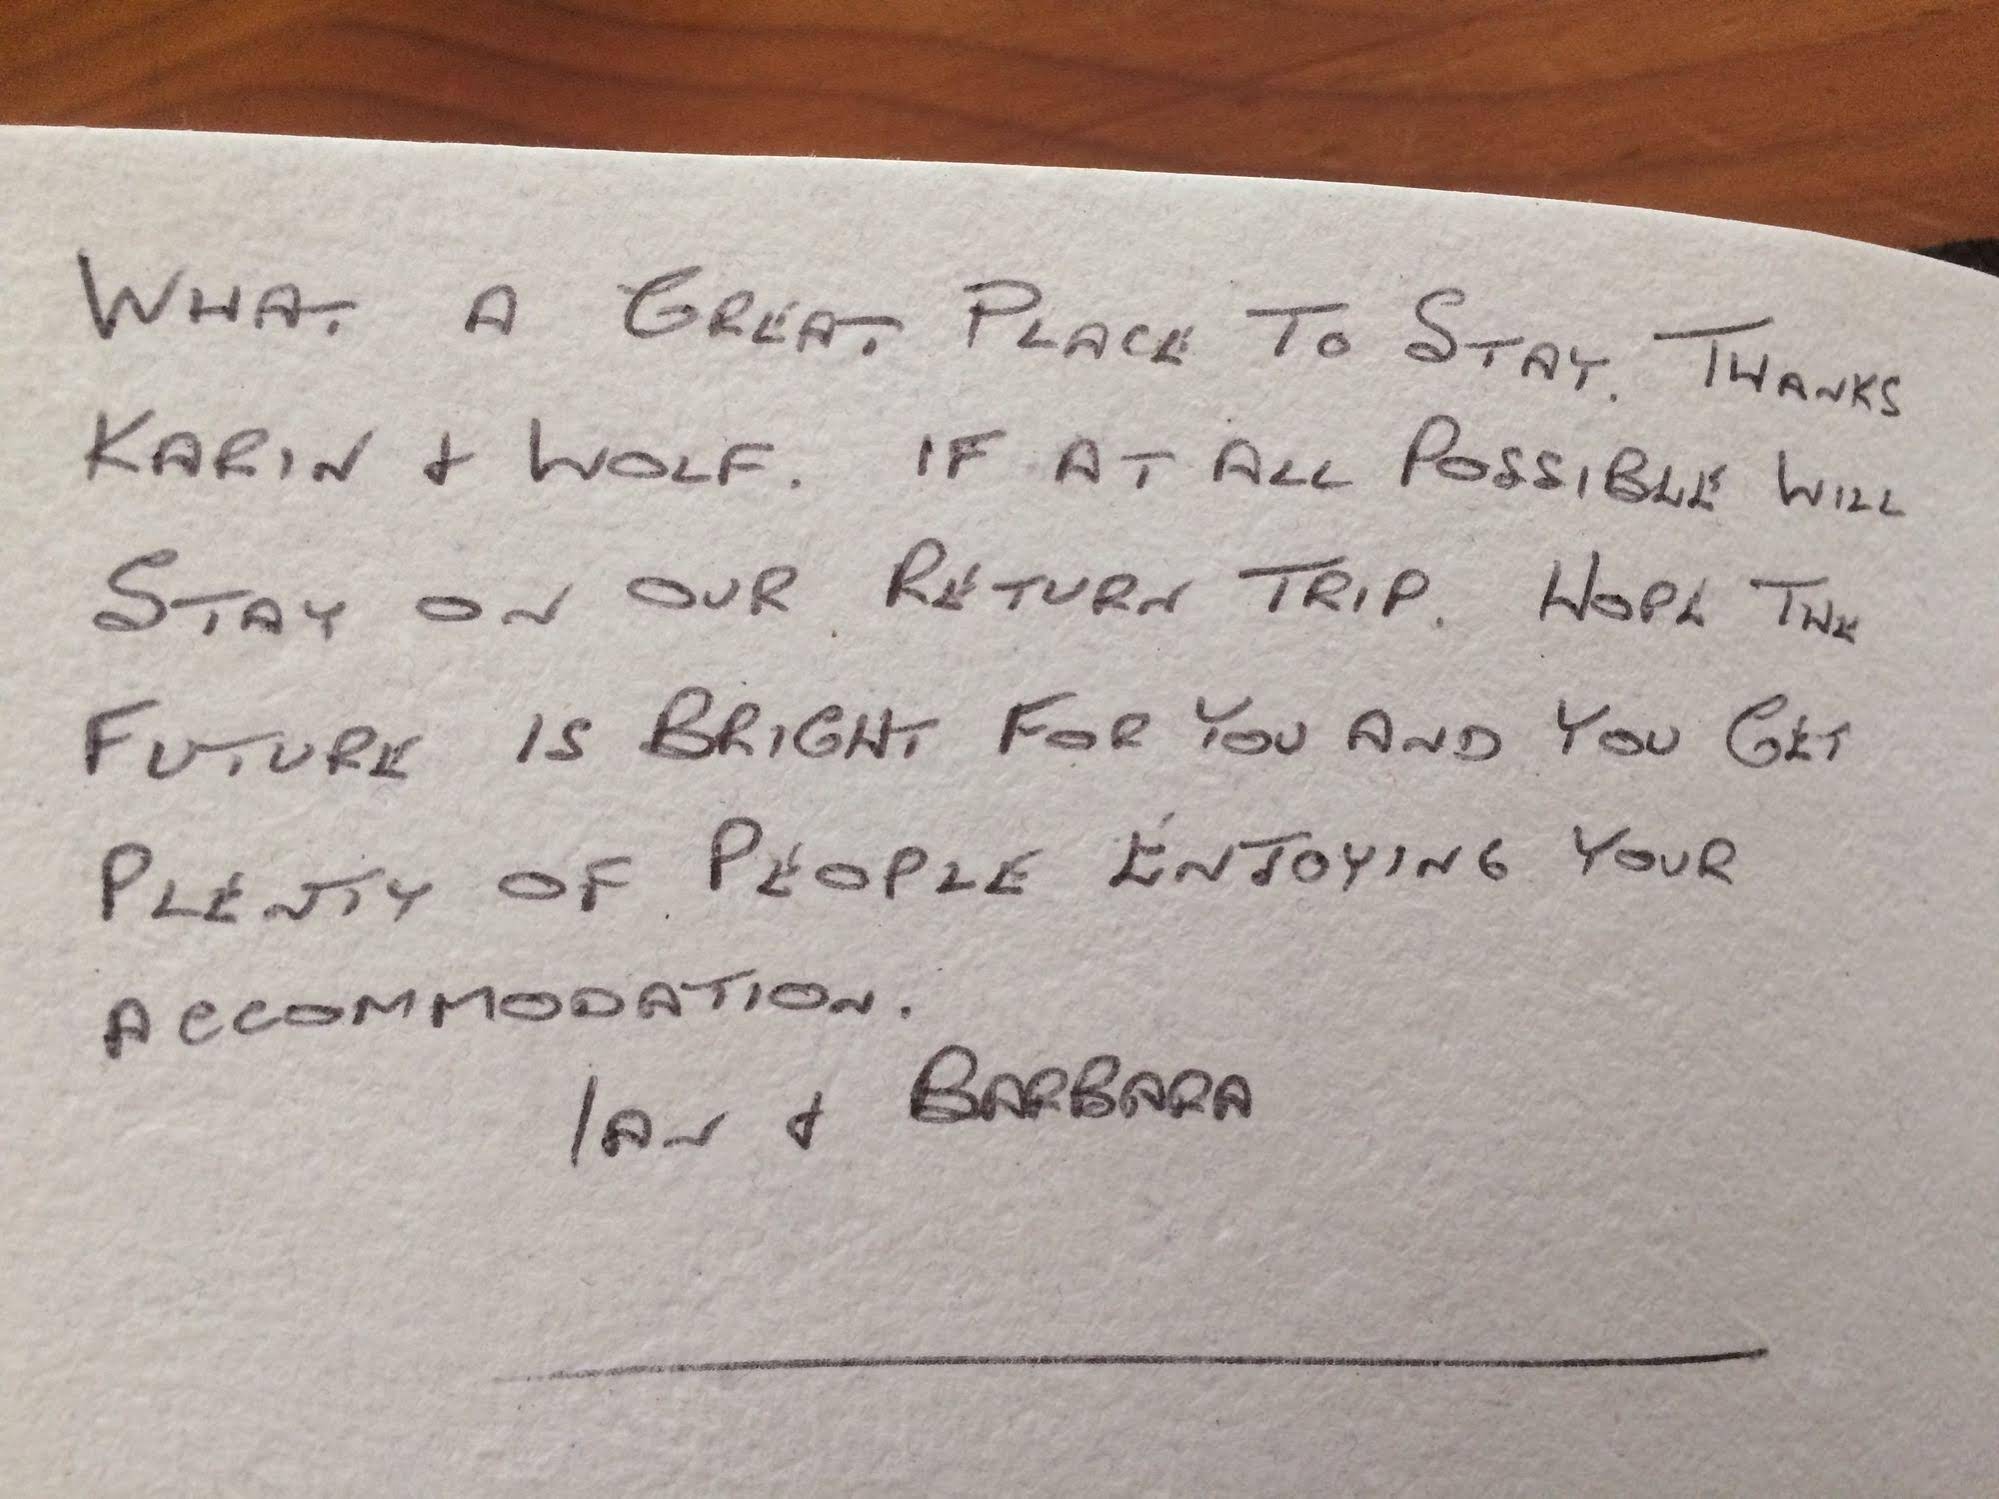 WHAT A GREAT PLACE TO STAY. THANKS
KARIN & WOLF. IF AT ALL POSSIBLE WILL
STAY ON OUR RETURN TRIP. HOPE THE
FUTURE IS BRIGHT FOR YOU AND YOU GET
PLENTY OF PEOPLE ENJOYING YOUR
ACCOMMODATION.
IAN & BARBARA